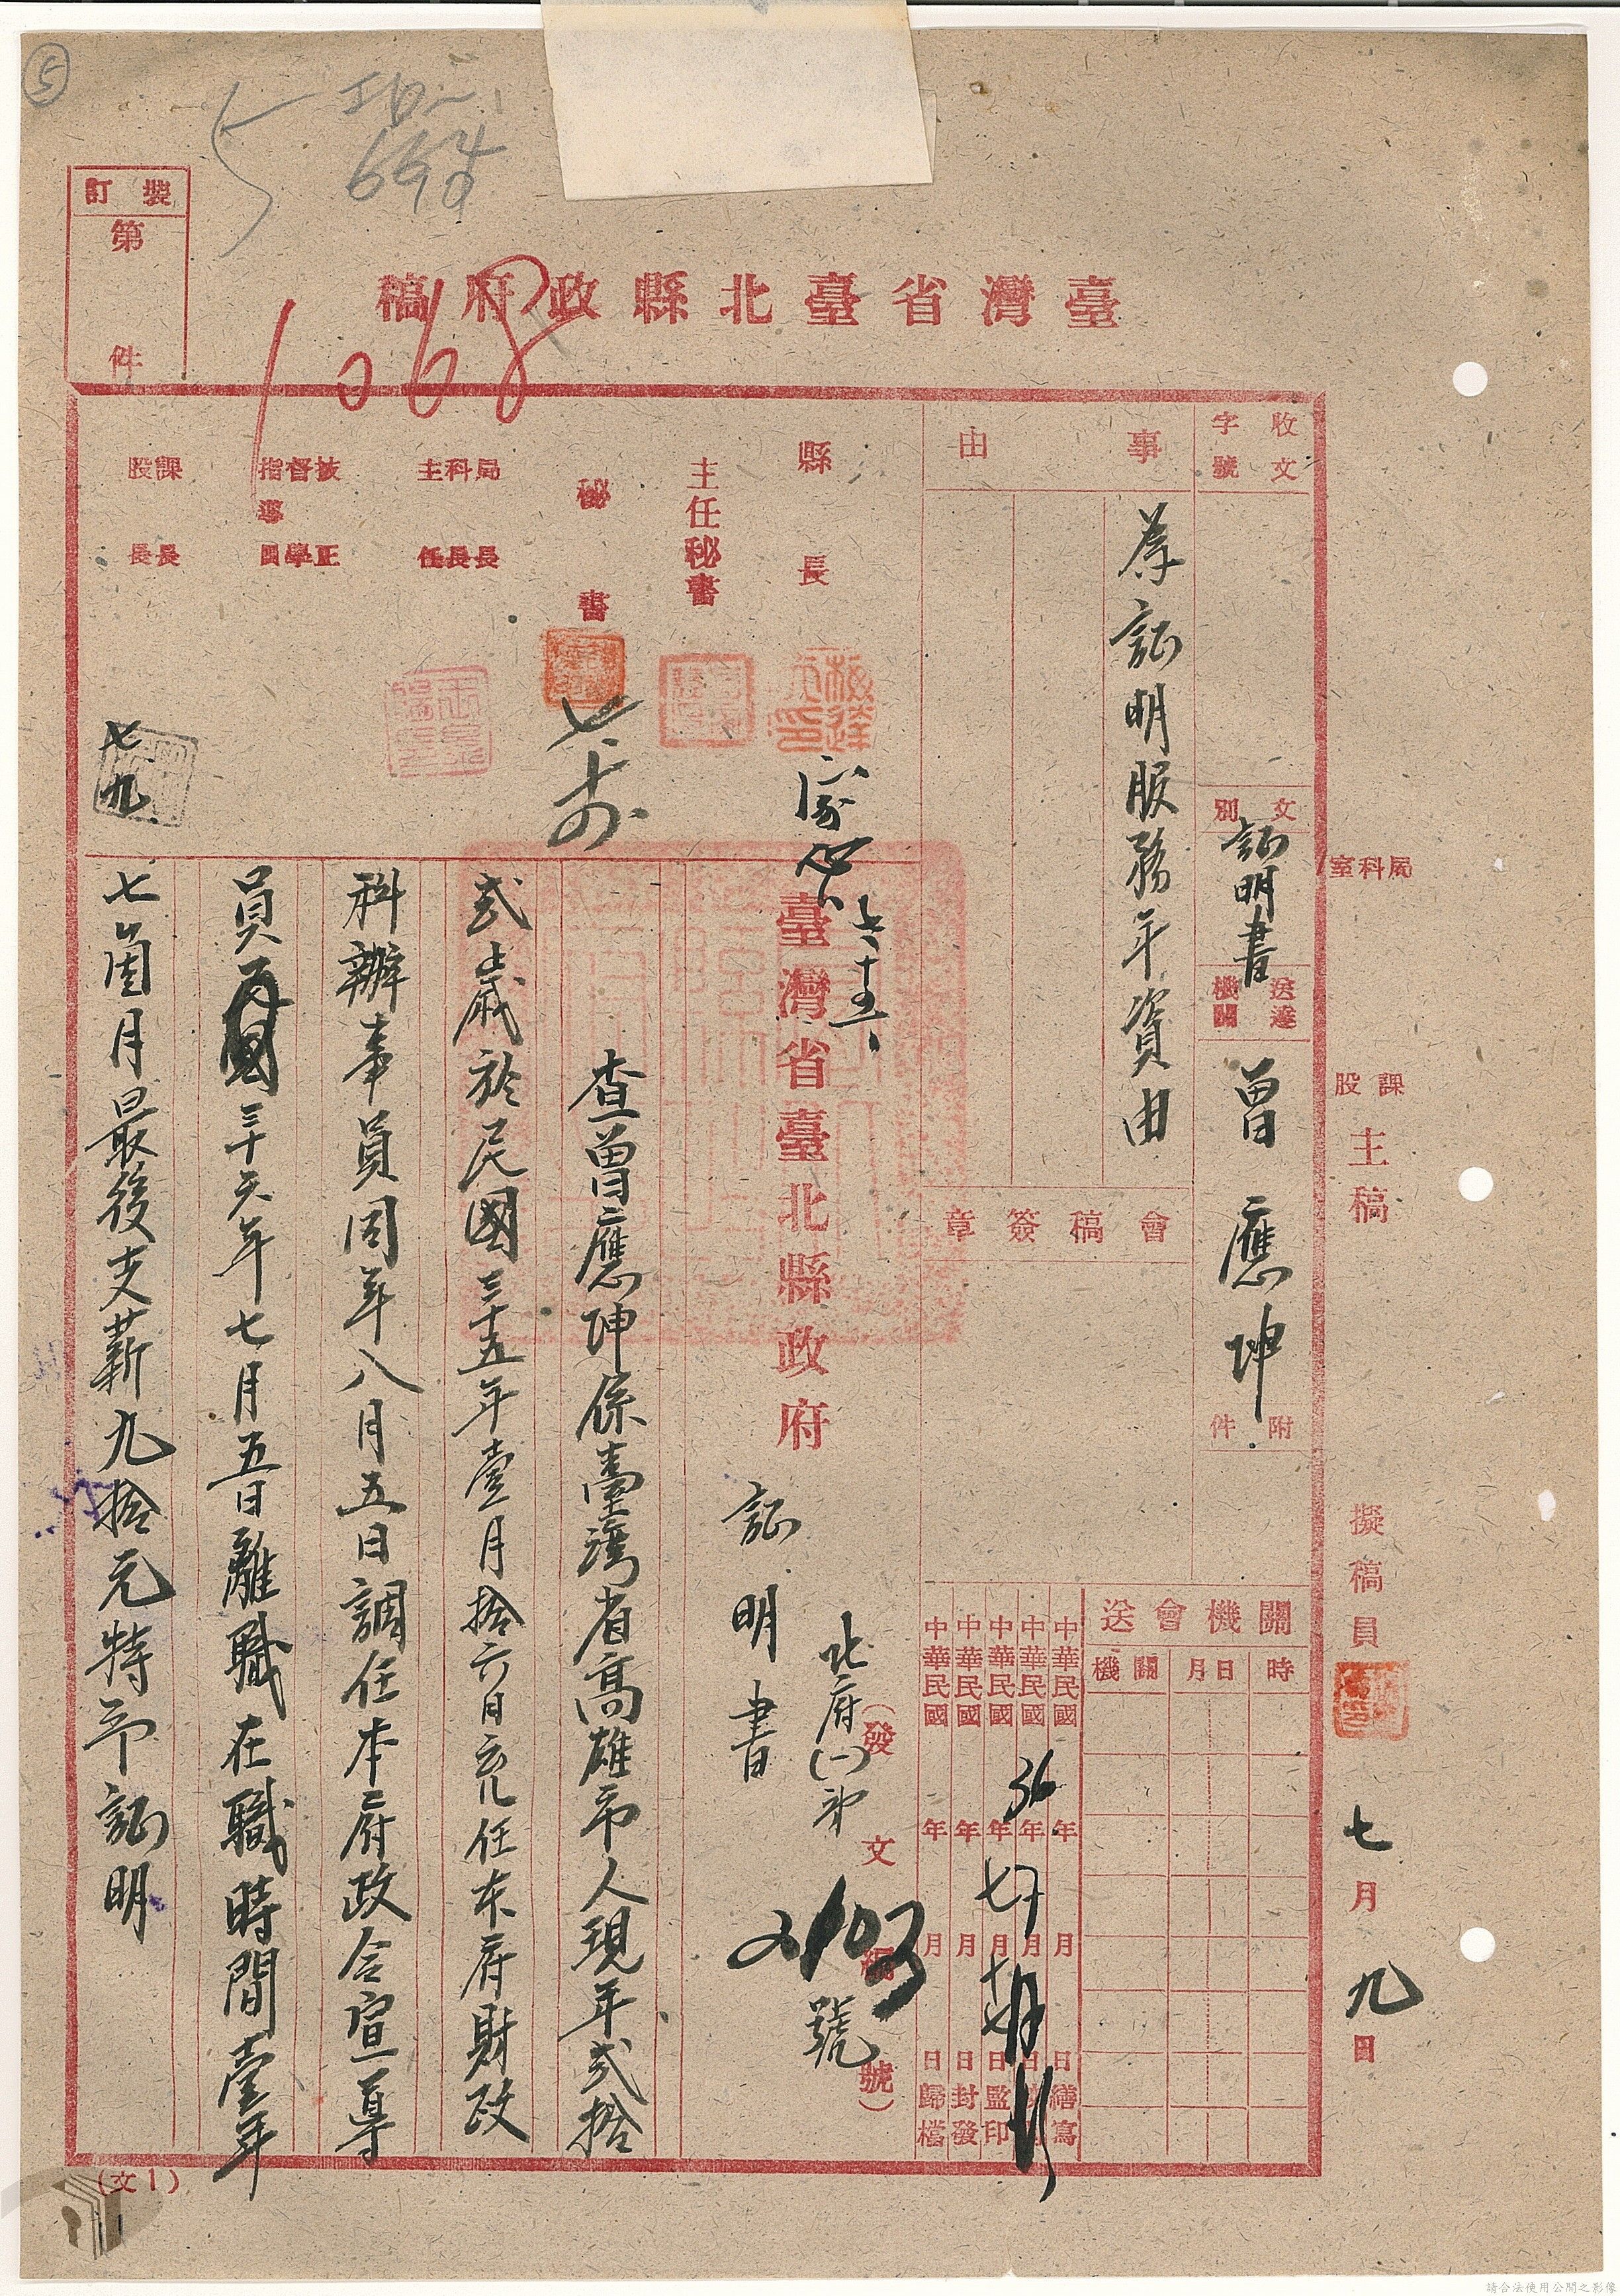 ⑤
5
裝訂
第
件
臺灣省臺北縣政府稿
1068
局科室
課股
主稿
擬稿員
七月九日
收文
字號
文別
証明書
送達機關
曾應坤
附件
事由
為証明服務年資由
會稿簽章
關機會送
時
月日
機關
中華民國 年 月 日繕寫
中華民國 36年 月 日
中華民國 年 七月 日監印
中華民國 年 月 日封發
中華民國 年 月 日歸檔
縣長
七、十五、
主任秘書
秘書
局科主
長長任
技督指導
正學員
課股
長長
七九
臺灣省臺北縣政府
(發文編號)
北府(一)第
2103
號
証明書
查曾應坤係臺灣省高雄市人現年弍拾
弍歲於民國三十五年壹月拾六日充任本府財政
科辦事員同年八月五日調任本府政令宣導
員民國三十六年七月五日離職在職時間壹年
七箇月最後支薪九拾元特予証明
(文1)
請合法使用公開之影像